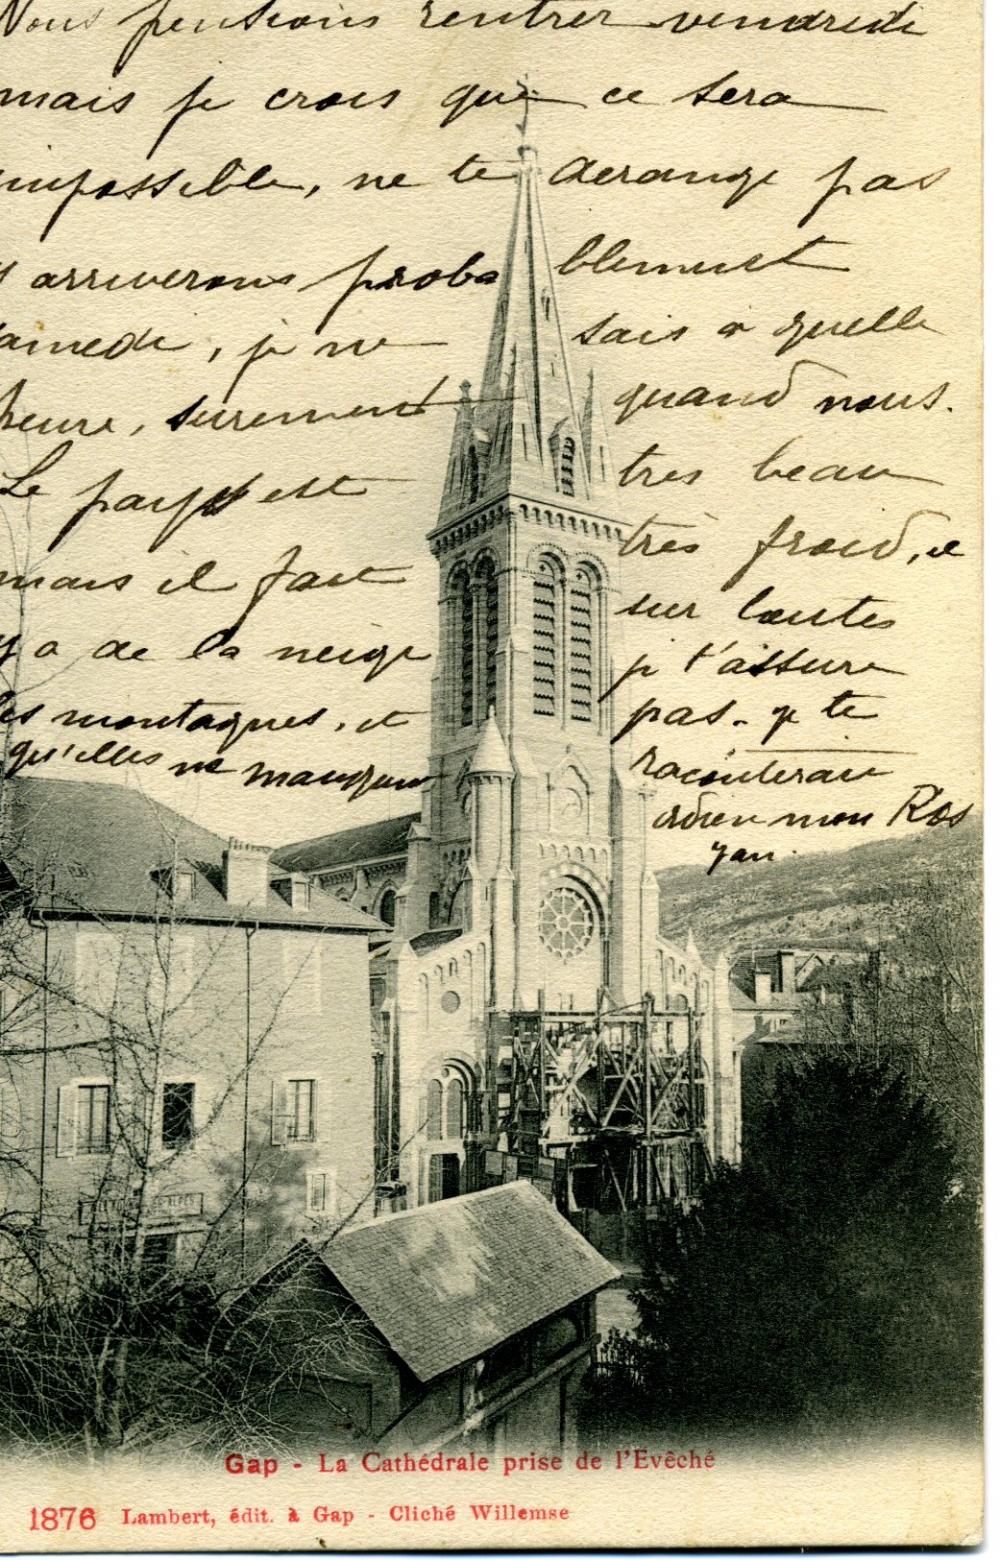 Nous pensions rentrer vendredi
mais je crois que ce sera
impossible, ne te derange pas
arriverons probablement
samedi, je ne sais a quelle
heure, surement quand nous.
Le pays est tres beau
mais il fait très froid, il
y a de la neige sur toutes
les montagnes, et je t'assure
qu'elles ne manquent pas. je te
raconterai
adieu mon Ros
yan.
Gap - La Cathédrale prise de l'Evêché
1876 Lambert, édit. à Gap - Cliché Willemse